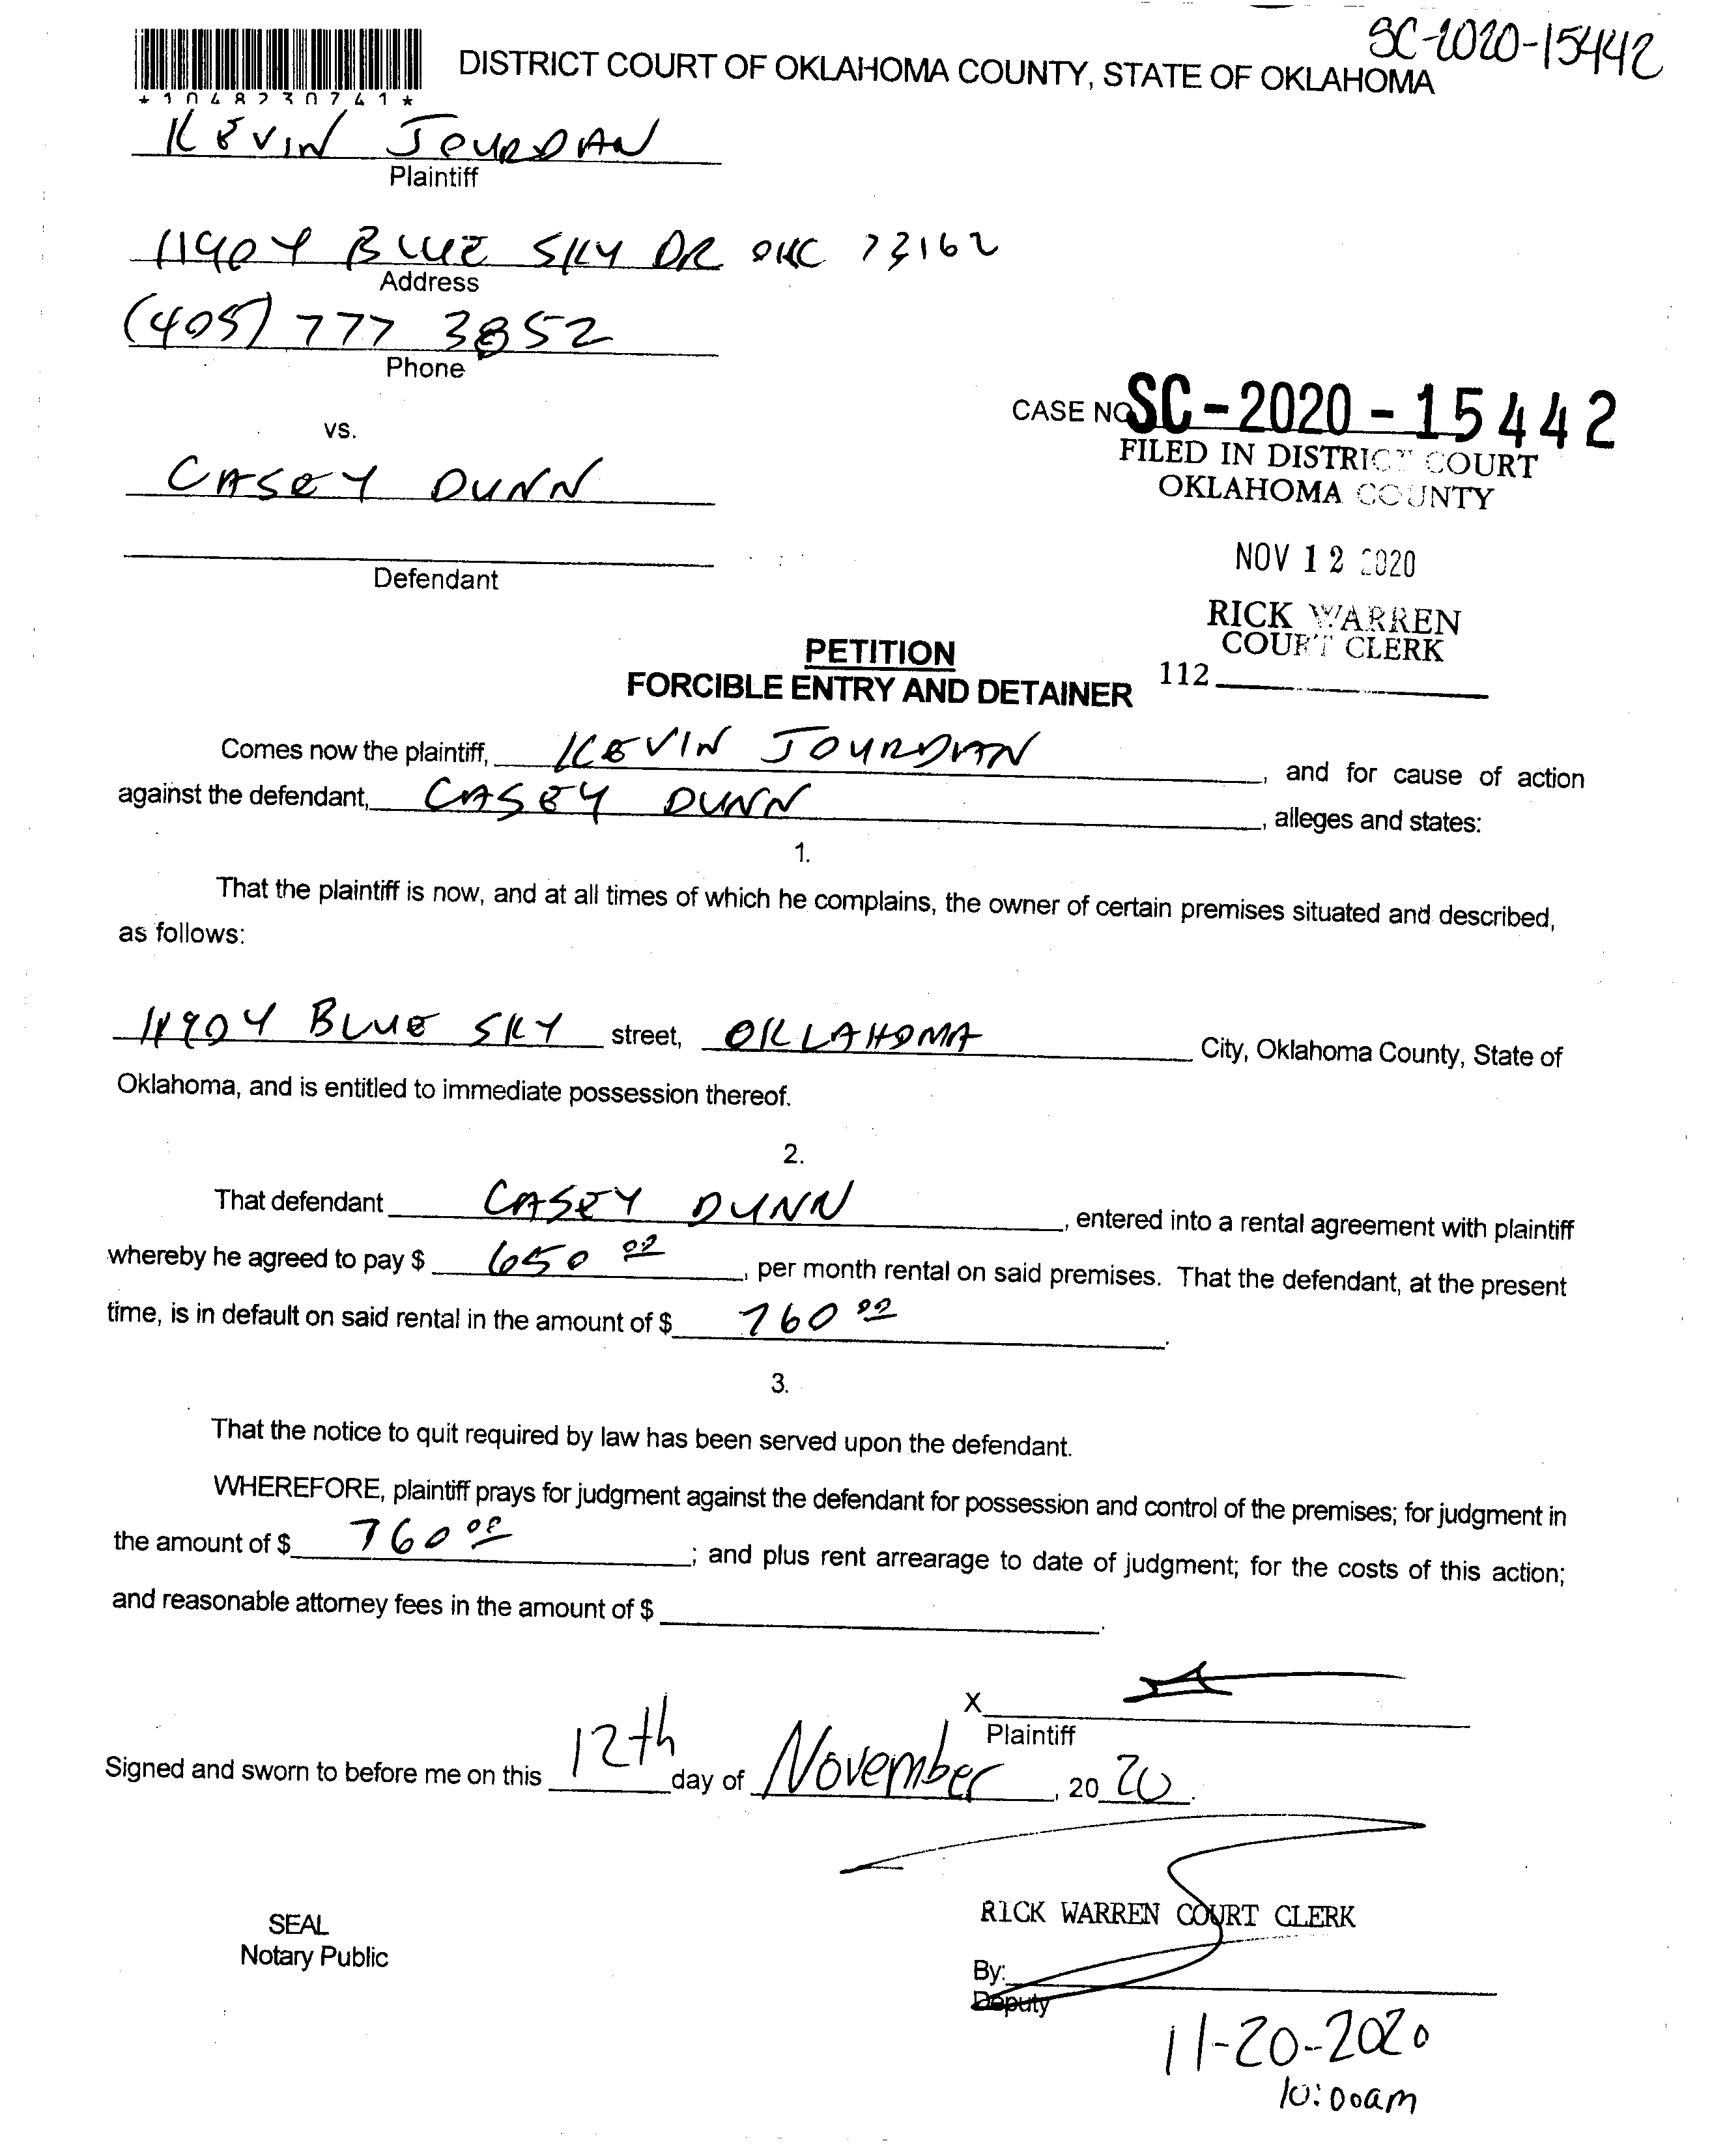 SC-2020-15442
DISTRICT COURT OF OKLAHOMA COUNTY, STATE OF OKLAHOMA
*1048230741*
KEVIN JOURDAN
Plaintiff
11904 BLUE SKY DR OKC 73162
Address
(405) 777 3852
Phone
CASE NO SC-2020-15442
FILED IN DISTRICT COURT
OKLAHOMA COUNTY
vs.
CASEY DUNN
NOV 12 2020
Defendant
RICK WARREN
COURT CLERK
112
PETITION
FORCIBLE ENTRY AND DETAINER
Comes now the plaintiff, KEVIN JOURDAN, and for cause of action
against the defendant, CASEY DUNN, alleges and states:
1.
That the plaintiff is now, and at all times of which he complains, the owner of certain premises situated and described,
as follows:
11904 BLUE SKY street, OKLAHOMA City, Oklahoma County, State of
Oklahoma, and is entitled to immediate possession thereof.
2.
That defendant CASEY DUNN, entered into a rental agreement with plaintiff
whereby he agreed to pay $ 650 00, per month rental on said premises. That the defendant, at the present
time, is in default on said rental in the amount of $ 760 00.
3.
That the notice to quit required by law has been served upon the defendant.
WHEREFORE, plaintiff prays for judgment against the defendant for possession and control of the premises; for judgment in
the amount of $ 760 00; and plus rent arrearage to date of judgment; for the costs of this action;
and reasonable attorney fees in the amount of $ .
X
Plaintiff
Signed and sworn to before me on this 12th day of November, 2020.
RICK WARREN COURT CLERK
SEAL
Notary Public
By:
Deputy
11-20-2020
10:00am